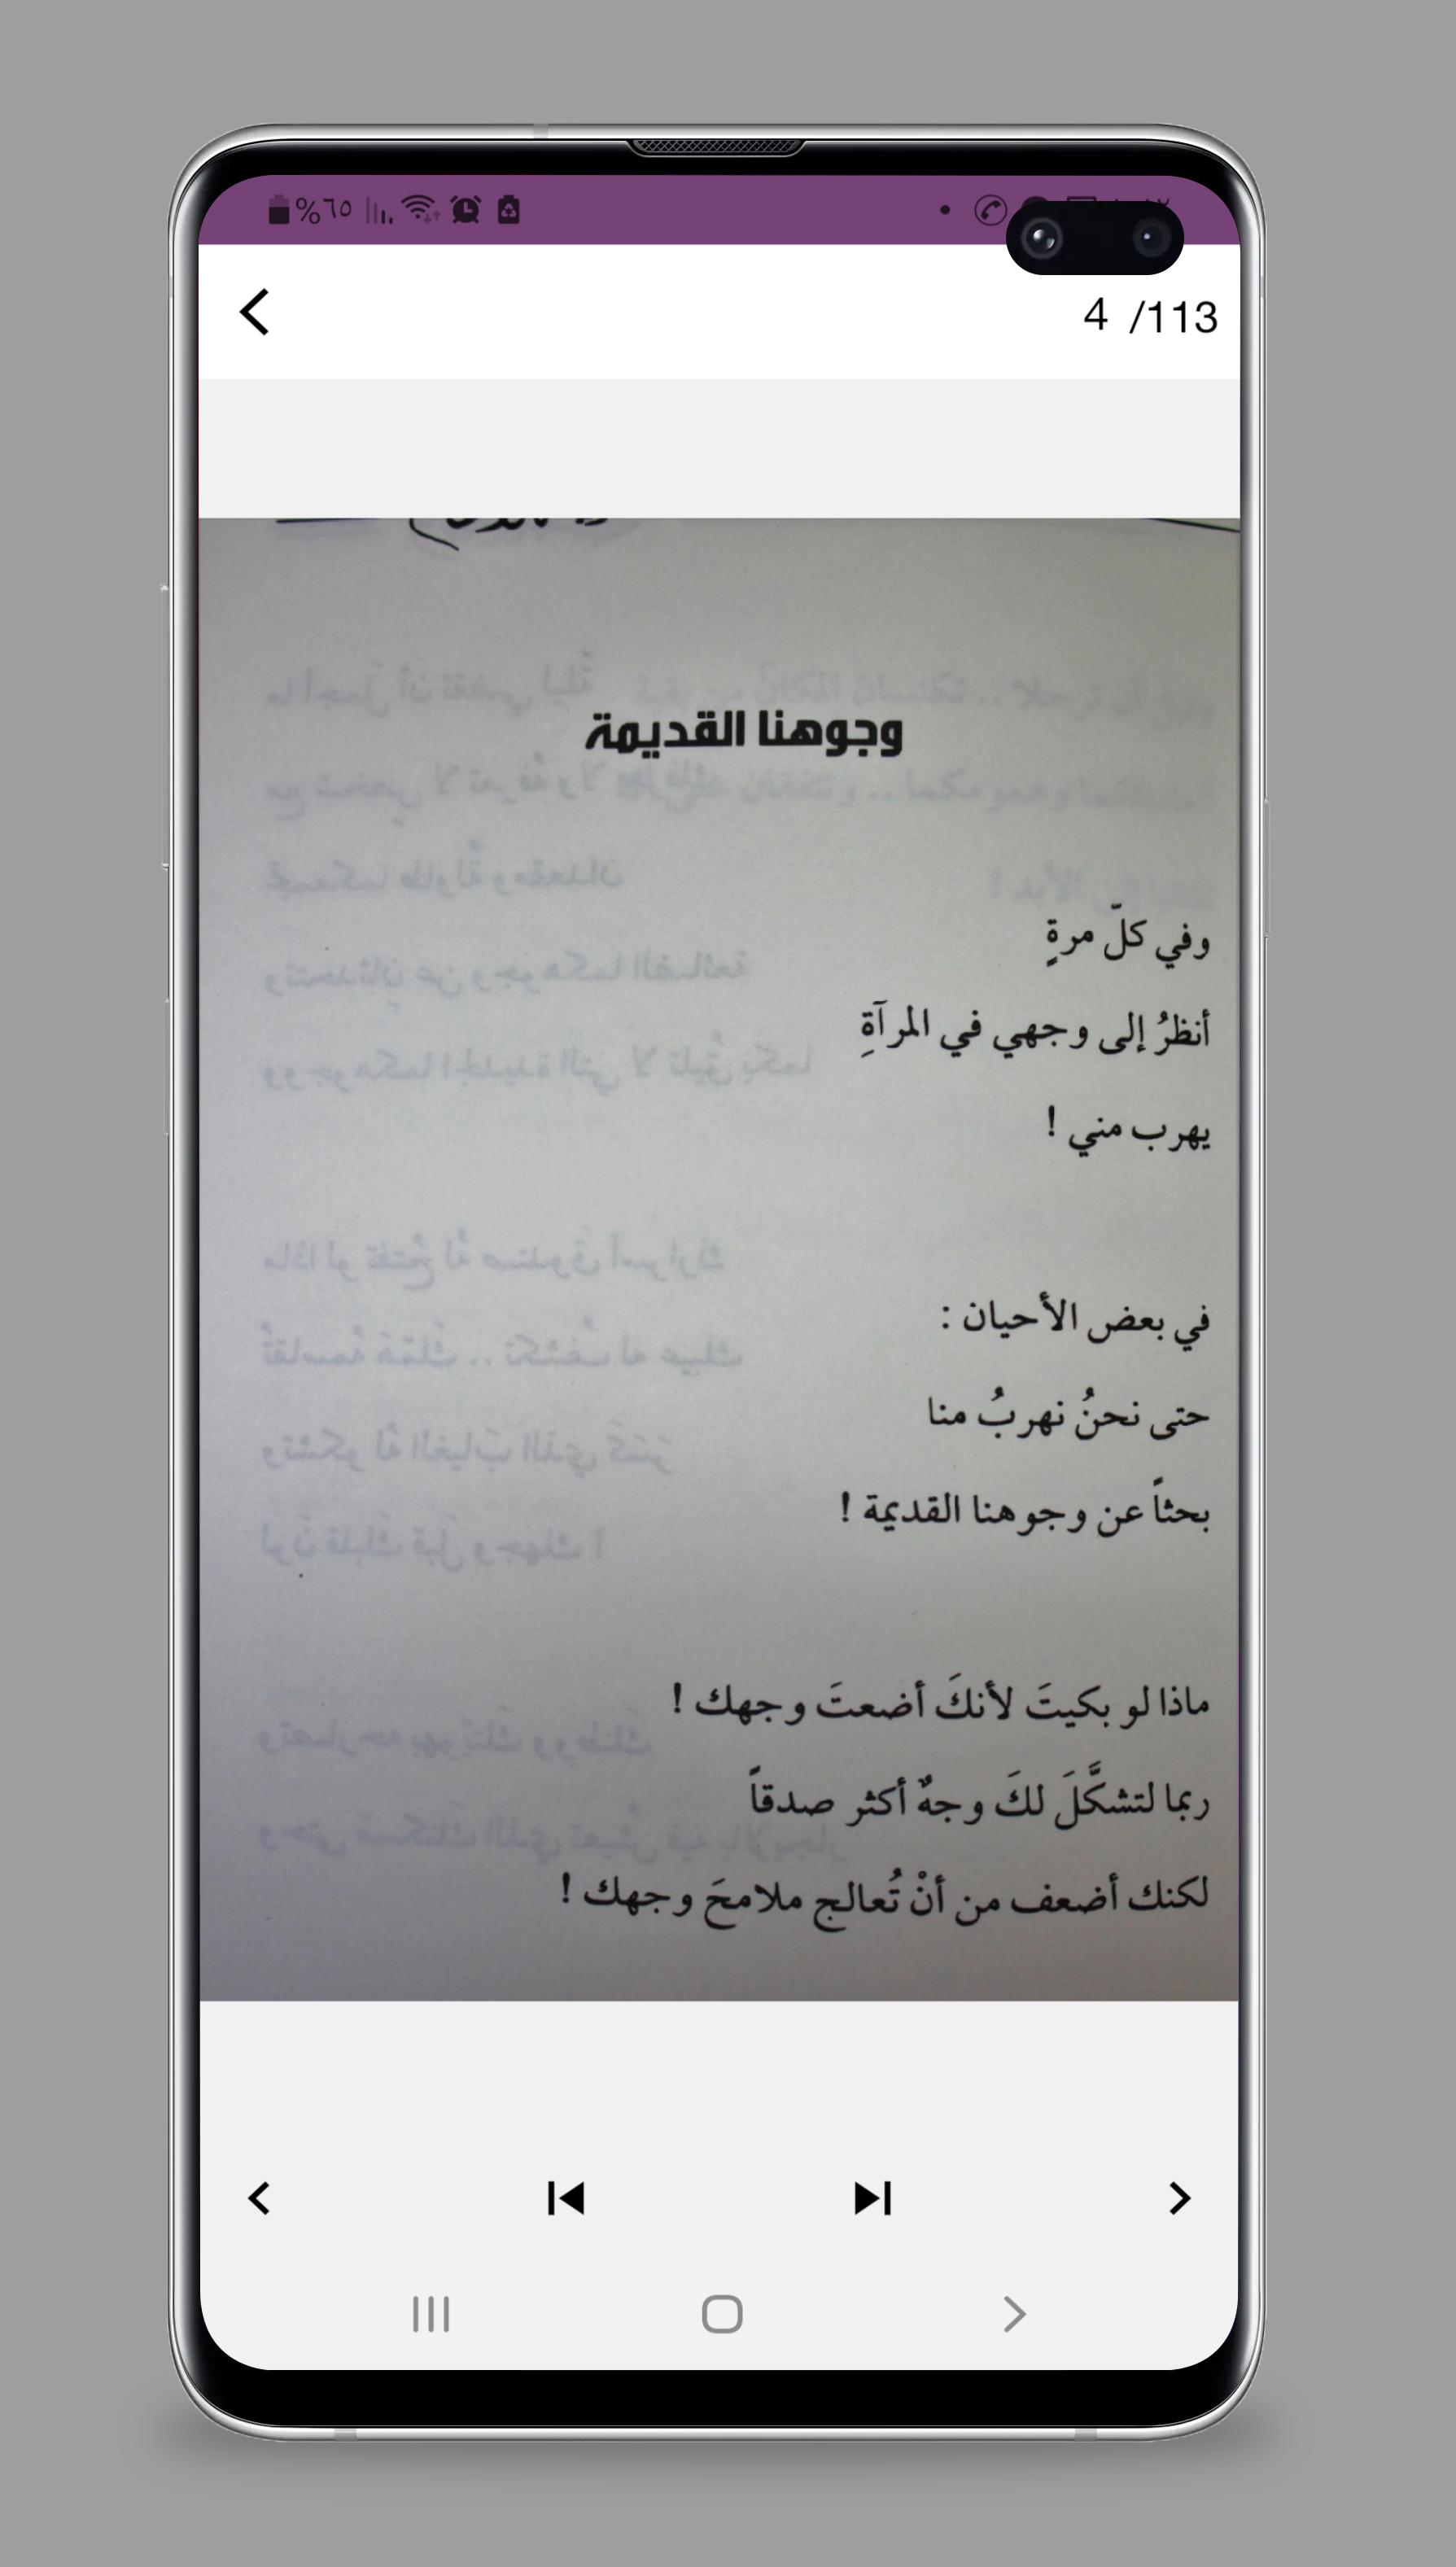 %٦٥
4 /113
وجوهنا القديمة
وفي كلّ مرةٍ
أنظرُ إلى وجهي في المرآةِ
يهرب مني !
في بعض الأحيان :
حتى نحنُ نهربُ منا
بحثاً عن وجوهنا القديمة !
ماذا لو بكيتَ لأنكَ أضعتَ وجهك !
ربما لتشكَّلَ لكَ وجهٌ أكثر صدقاً
لكنك أضعف من أنْ تُعالج ملامحَ وجهك !